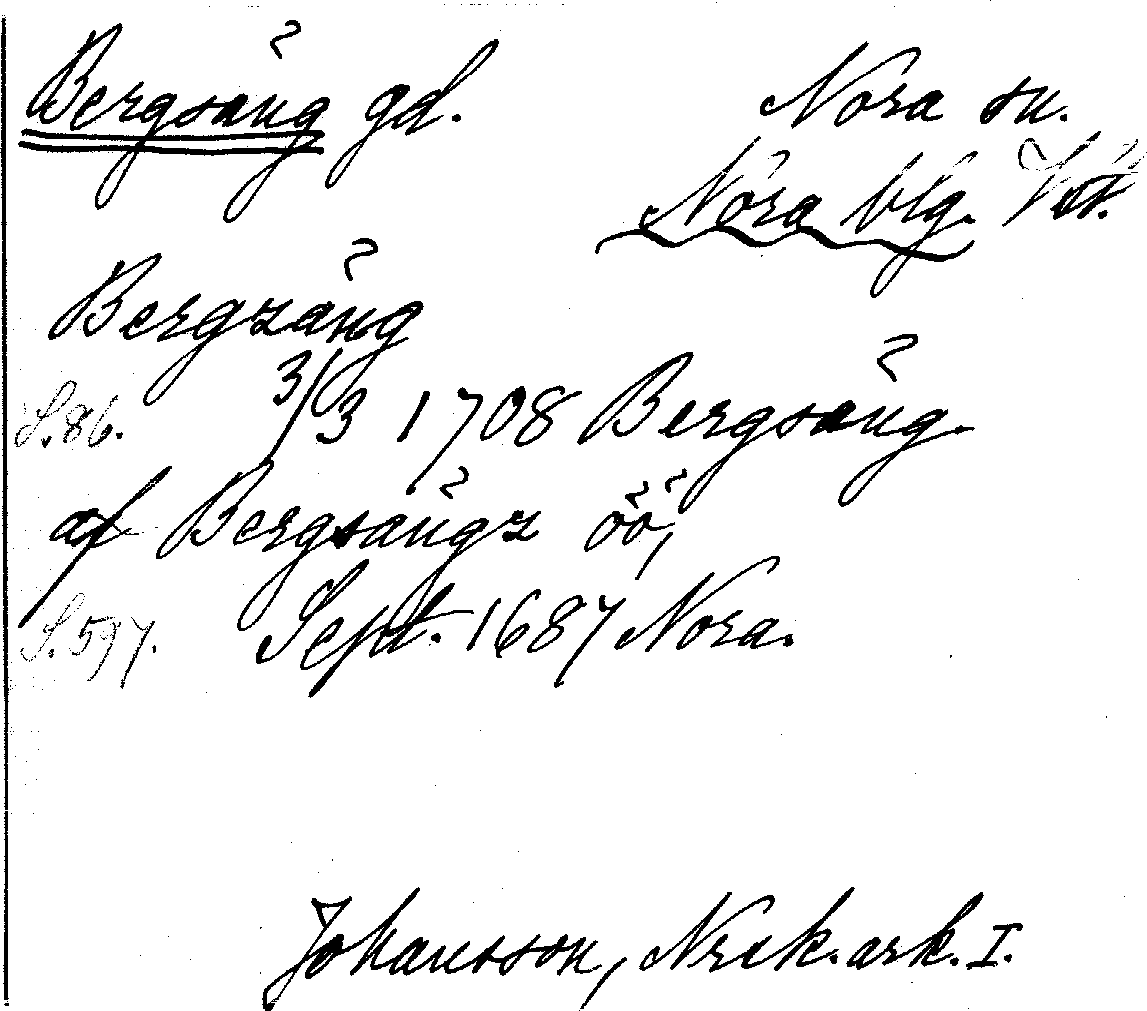 Bergsäng gd.
Nora sn.
Nora blg. Vstl.
Bergzäng
S.86. 3/3 1708 Bergsäng.
af Bergsängz öö,
S.597. Sept. 1687 Nora.
Johansson, Nrck. ark. I.